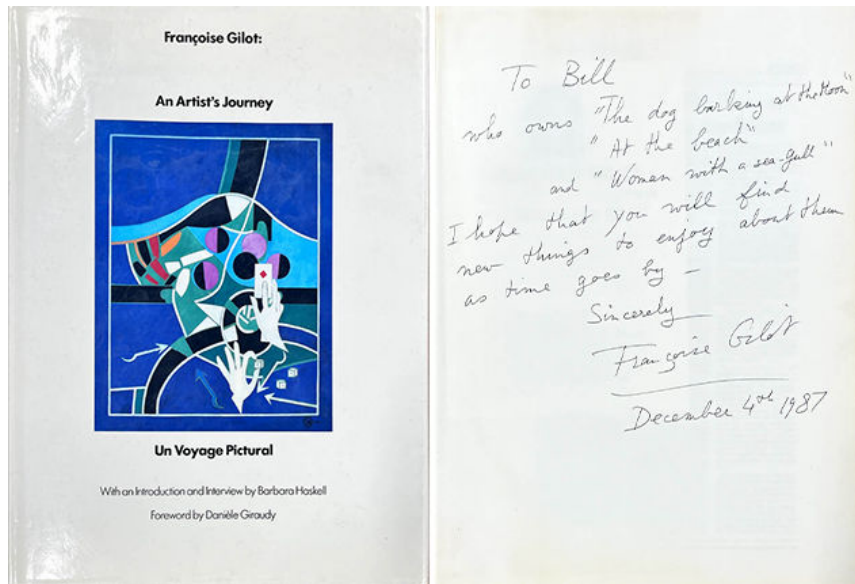 Françoise Gilot:
An Artist's Journey
Un Voyage Pictural
With an Introduction and Interview by Barbara Haskell
Foreword by Danièle Giraudy
To Bill
who owns "The dog barking at the Moon"
"At the beach"
and "Woman with a sea-gull"
I hope that you will find
new things to enjoy about them
as time goes by –
Sincerely
Françoise Gilot
December 4th 1987